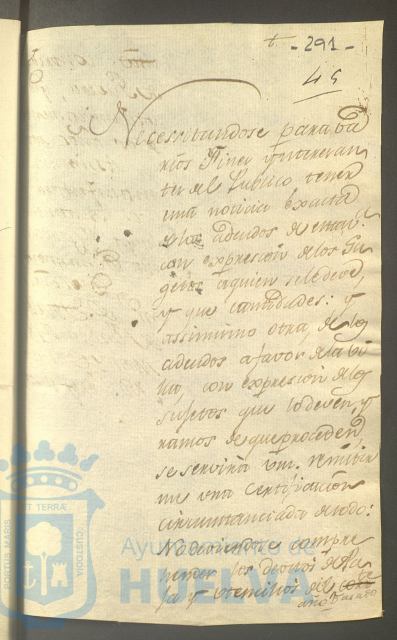 t. - 291 -
45
Necesitandose para ba
rios fines interesan
tes del Publico tener
una noticia exacta
de los adeudos de
con expresion de los Su
getos a quien se le deve,
y que cantidades: y
assimismo otra, de los
adeudos a favor de la Vi
lla, con expresion de los
sujetos que lo deven, y
ramos de que proceden,
se servirà vm. remitir
me una Certificacion
circunstanciada de todo:
No deviendose compre
hender los devitos de Pa
ja y Utensilios del
año
PORTUS MARIS ET TERRÆ CUSTODIA
Ayuntamiento de
HUELVA